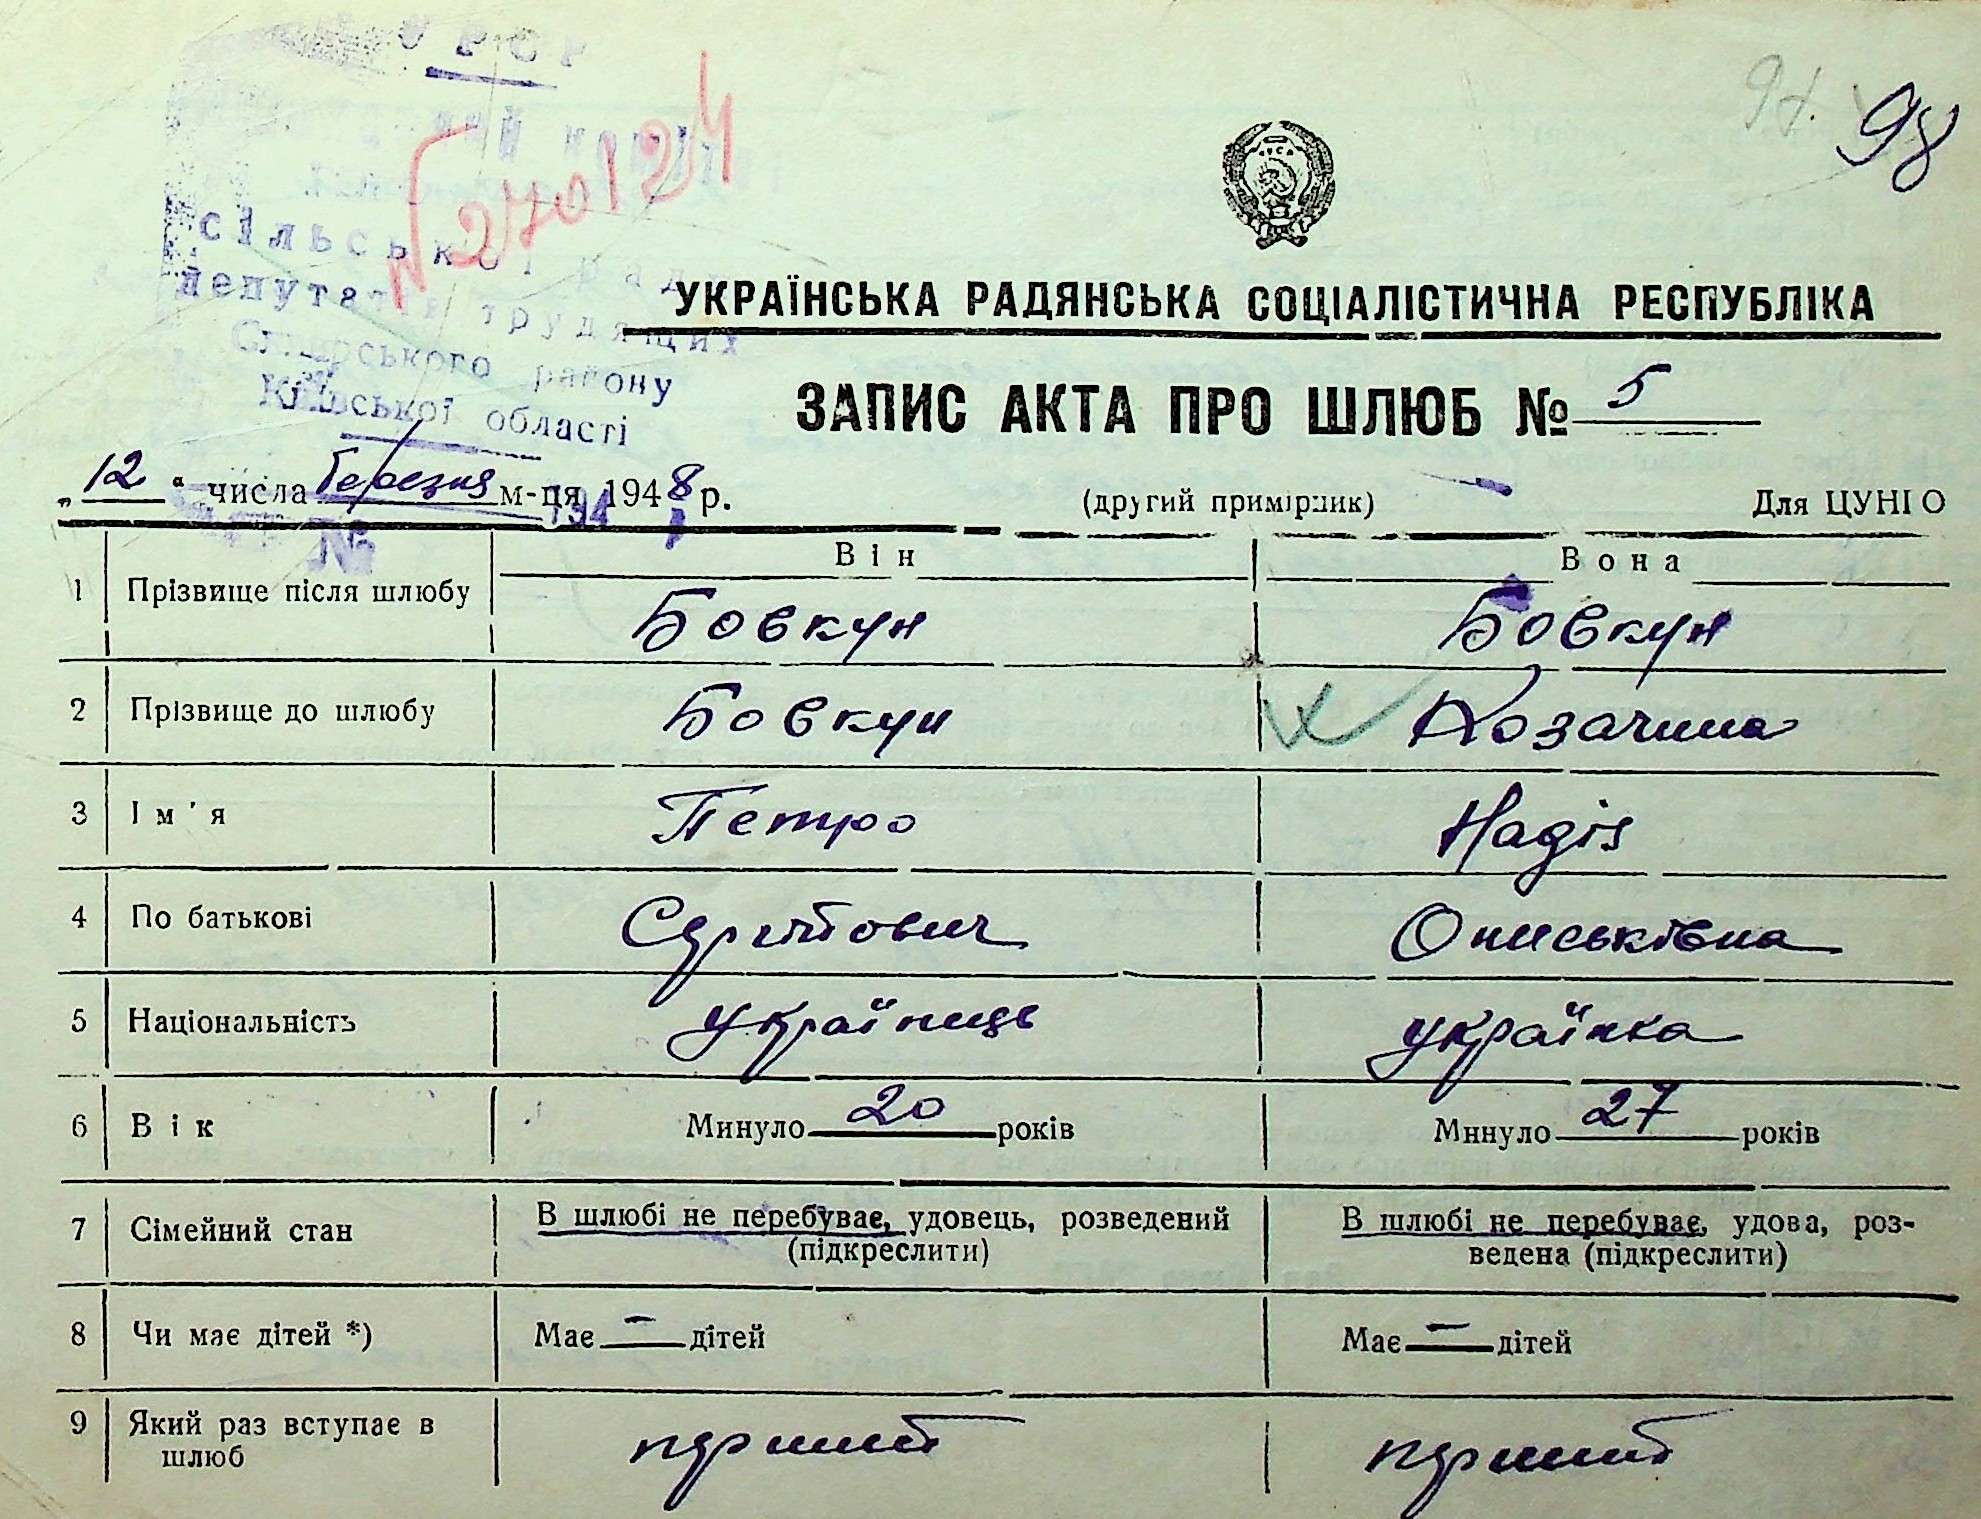 УРСР
сільської ради
депутатів трудящих
району
Київської області
№ 270124
98
УКРАЇНСЬКА РАДЯНСЬКА СОЦІАЛІСТИЧНА РЕСПУБЛІКА
ЗАПИС АКТА ПРО ШЛЮБ № 5
„12“ числа березня м-ця 1948 р.
(другий примірник)
Для ЦУНГО
194
№
Він Вона
1 Прізвище після шлюбу Бовкун Бовкун
2 Прізвище до шлюбу Бовкун Козачина
3 Ім'я Петро Надія
4 По батькові Ониськівна
5 Національність українець українка
6 Вік Минуло 20 років Минуло 27 років
7 Сімейний стан В шлюбі не перебуває, удовець, розведений В шлюбі не перебуває, удова, роз-
(підкреслити) ведена (підкреслити)
8 Чи має дітей *) Має — дітей Має — дітей
9 Який раз вступає в
шлюб перший перший